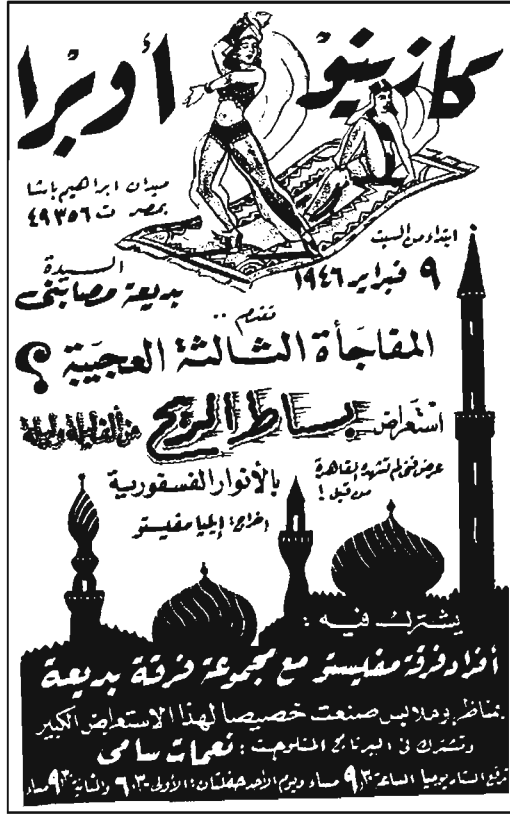 كازينو أوبرا
ميدان ابراهيم باشا
بمصر ت ٤٩٣٥٦
ابتداء من السبت
٩ فبراير ١٩٤٦
السيدة
بديعة مصابنى
تقدم ..
المفاجأة الثالثة العجيبة ؟
استعراض بساط الريح من ألف ليلة وليلة
عرض فنى لم تشهده القاهرة
من قبل !
بالأنوار الفسفورية
اخراج: إيليا مفيستو
يشترك فيه :
أفراد فرقة مفليستو مع مجموعة فرقة بديعة
بمناظر وملابس صنعت خصيصا لهذا الاستعراض الكبير
وتشترك فى البرنامج المنلوجست : نعمات سامى
ترفع الستار يوميا الساعة ٩٫٣٠ مساء ويوم الأحد حفلتان : الأولى ٦٫٣٠ والثانية ٩٫٣٠ مساء